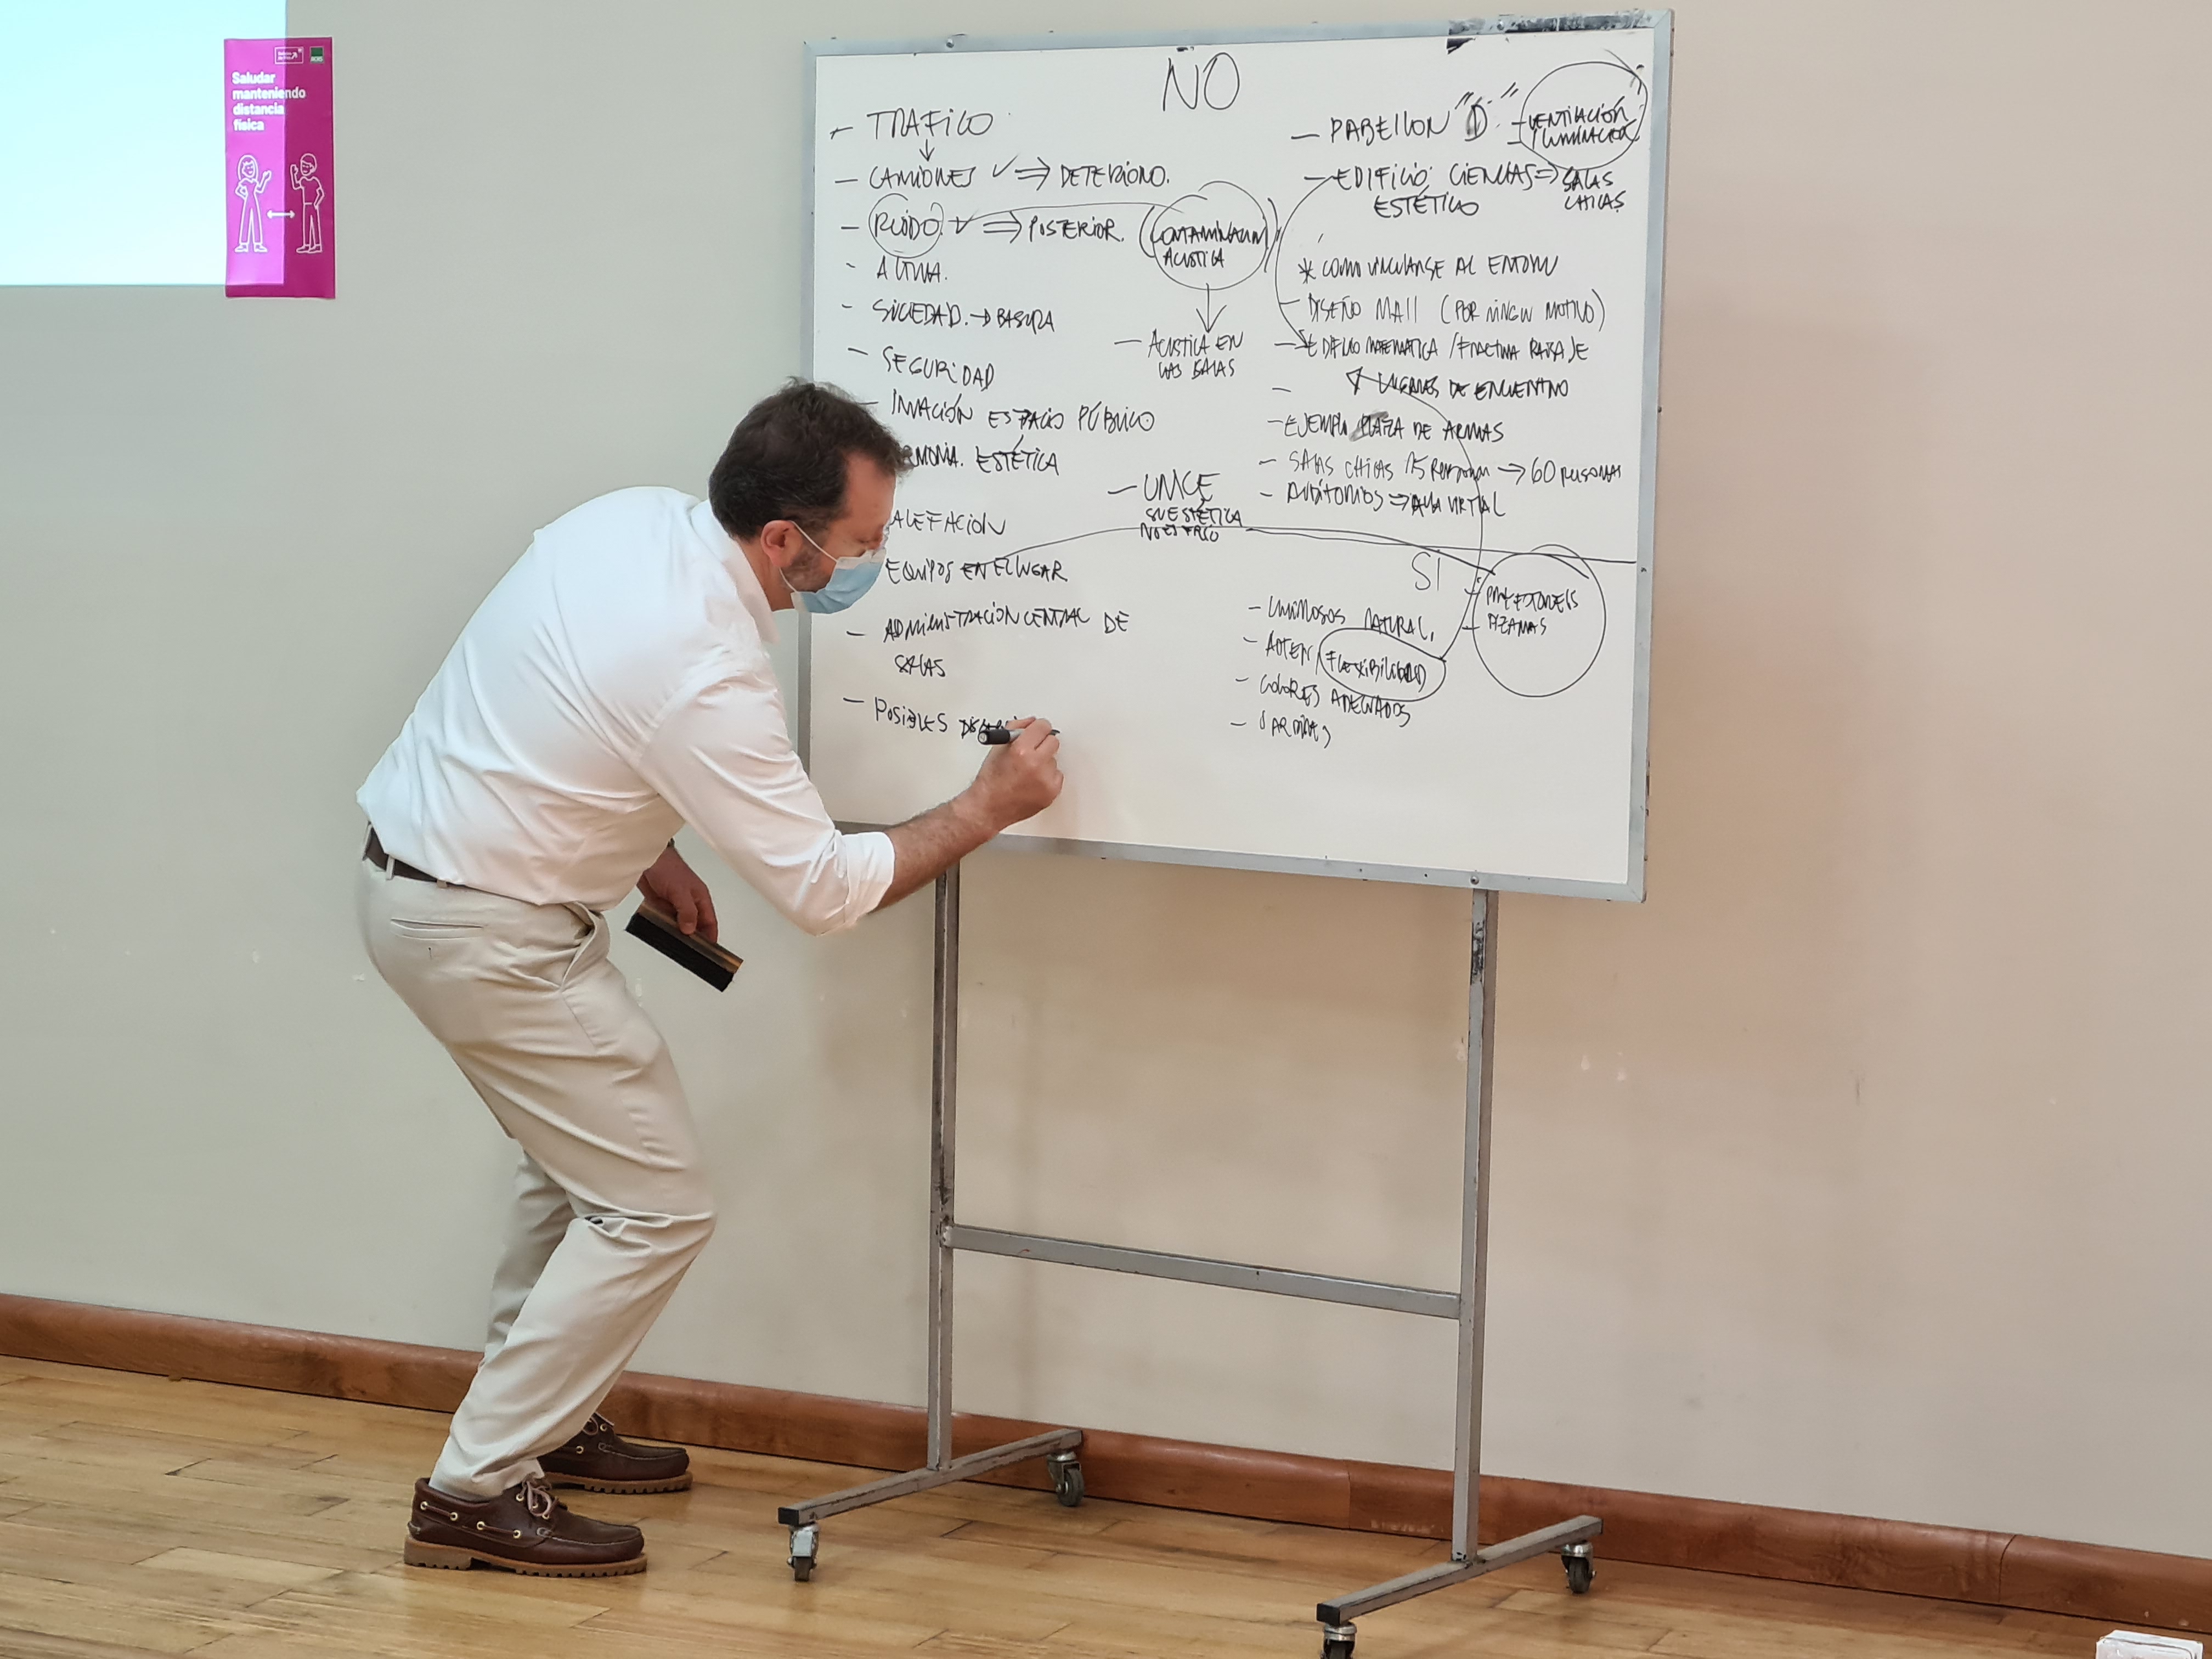 Saludar
manteniendo
distancia
física
NO
- TRAFICO
- CAMIONES ✓ ⇒ DETERIORO.
- RUIDO ✓ ⇒ POSTERIOR. (CONTAMINACION
ACUSTICA)
- ALTURA.
- SUCIEDAD. → BASURA
- SEGURIDAD
- INVACIÓN ESPACIO PÚBLICO
ESTÉTICA
EQUIPOS EN EL LUGAR
- ADMINISTRACIÓN CENTRAL DE
SALAS
- POSIBLES
- ACUSTICA EN
LAS SALAS
- UMCE
SU ESTÉTICA
NO ES FRIO
- PABELLON "D" - VENTILACIÓN
- ILUMINACION
- EDIFICIO CIENCIAS ⇒ SALAS
ESTÉTICO CHICAS
* COMO VINCULARSE AL ENTORNO
- DISEÑO MALL (POR NINGUN MOTIVO)
- EDIFICIO MATEMATICA / FRACTURA PAISAJE
- LUGARES DE ENCUENTRO
- EJEMPLO PLAZA DE ARMAS
- SALAS CHICAS 15 PERSONAS → 60 PERSONAS
- AUDITORIOS ⇒ AULA VIRTUAL
SI
- LUMINOSOS NATURAL.
- FLEXIBILIDAD
- COLORES ADECUADOS
- PROYECTORES
- PIZARRAS